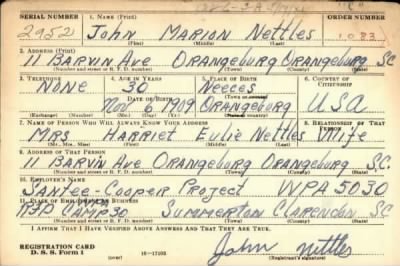 SERIAL NUMBER 1. NAME (Print) ORDER NUMBER
2952 John MARION Nettles 1083
(First) (Middle) (Last)
2. ADDRESS (Print)
11 BARVIN Ave ORANGEburg ORANgeburg SC
(Number and street or R. F. D. number) (Town) (County) (State)
3. TELEPHONE 4. AGE IN YEARS 5. PLACE OF BIRTH 6. COUNTRY OF CITIZENSHIP
NONE 30 Neeces
DATE OF BIRTH
Nov 6 1909 ORANgeburg USA
(Exchange) (Number) (Mo.) (Day) (Yr.) (State or country)
7. NAME OF PERSON WHO WILL ALWAYS KNOW YOUR ADDRESS 8. RELATIONSHIP OF THAT PERSON
MRS HARRIET Eulie Nettles Wife
(Mr., Mrs., Miss) (First) (Middle) (Last)
9. ADDRESS OF THAT PERSON
11 BARVIN Ave ORANgeburg ORANgeburg SC.
(Number and street or R. F. D. number) (Town) (County) (State)
10. EMPLOYER'S NAME
SANTee-Cooper Project WPA 5030
11. PLACE OF EMPLOYMENT OR BUSINESS
RFD CAMP 30 SUMMERTON CLARENDON SC
(Number and street or R. F. D. number) (Town) (County) (State)
I AFFIRM THAT I HAVE VERIFIED ABOVE ANSWERS AND THAT THEY ARE TRUE.
REGISTRATION CARD
D. S. S. Form 1 (over) 16—17105 John Nettles